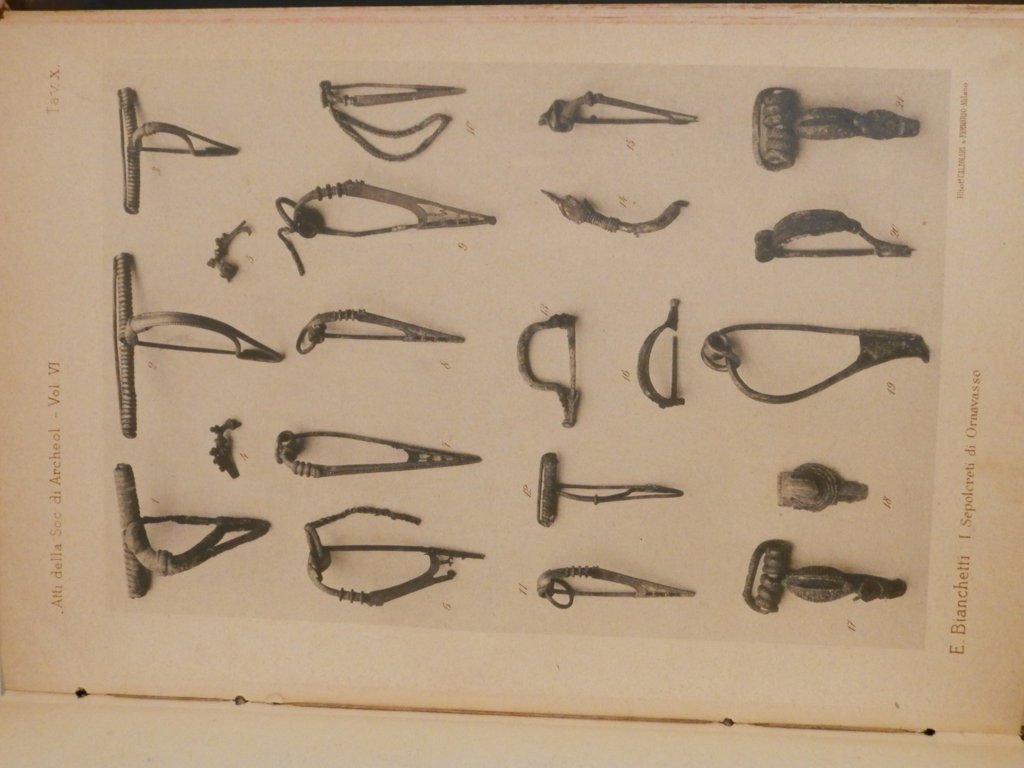 Atti della Soc di Archeol - Vol VI
Tav. X.
1
2
3
4
5
6
7
8
9
10
11
12
13
14
15
16
17
18
19
20
21
E. Bianchetti I Sepolcreti di Ornavasso
Eliot. CALZOLARI & FERRARIO - Milano